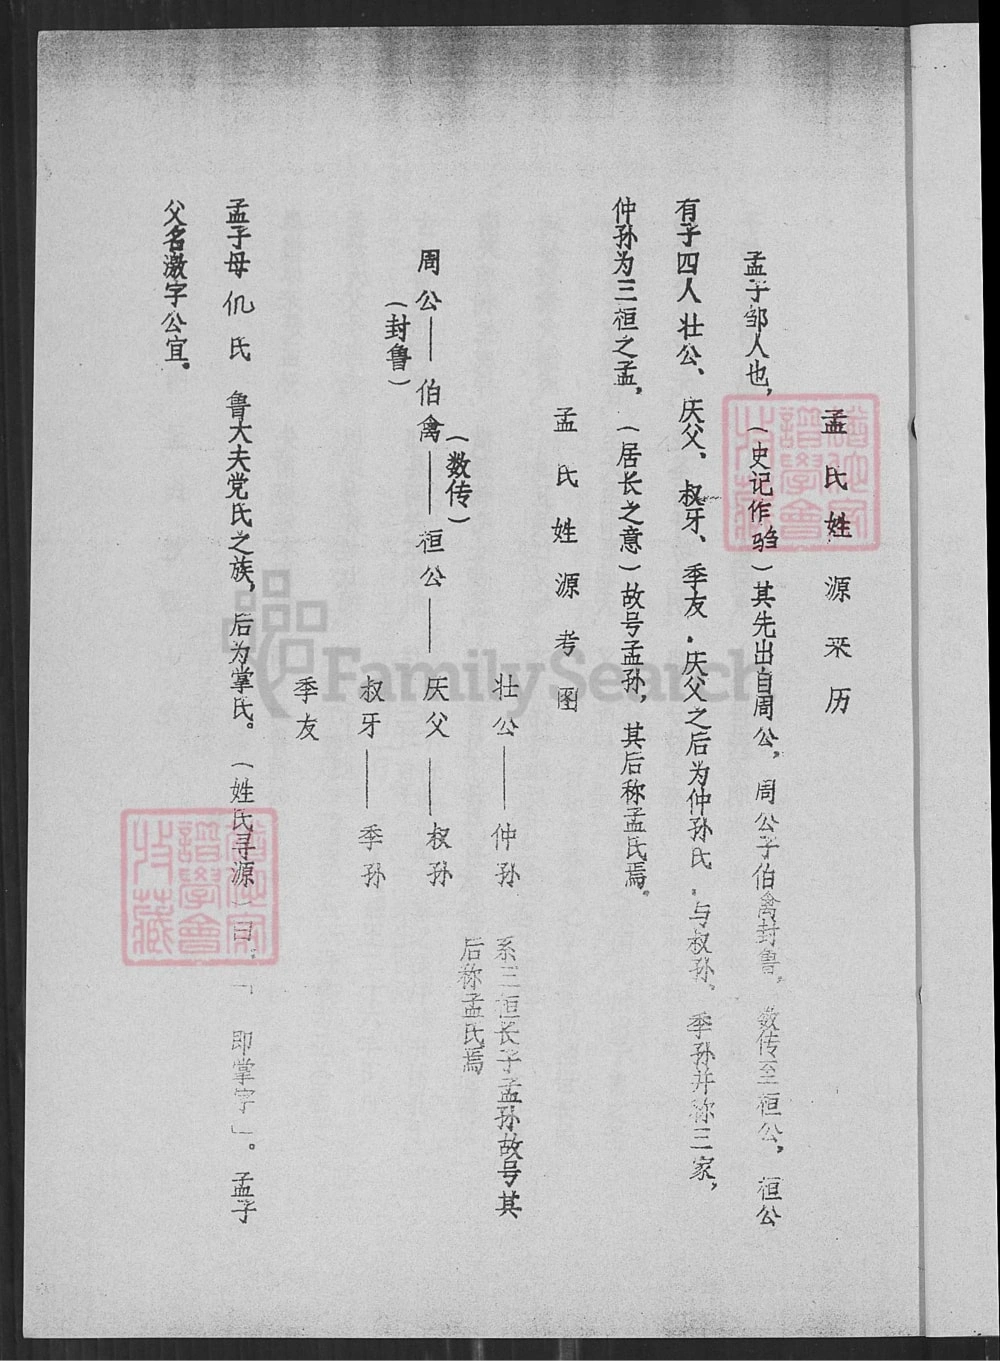 孟氏姓源来历
孟子邹人也，（史记作驺）其先出自周公，周公子伯禽封鲁，数传至桓公，桓公
有子四人壮公、庆父、叔牙、季友．庆父之后为仲孙氏．与叔孙、季孙并称三家，
仲孙为三桓之孟，（居长之意）故号孟孙，其后称孟氏焉。
孟氏姓源考图
壮公——仲孙
系三桓长子孟孙故号其
后称孟氏焉
（数传）
周公——伯禽——桓公——庆父——叔孙
（封鲁）
叔牙——季孙
季友
孟子母仉氏 鲁大夫党氏之族，后为掌氏。（姓氏寻源）曰．「 即掌字」。孟子
父名激字公宜。
譜學會
收藏
譜學會
收藏
FamilySearch